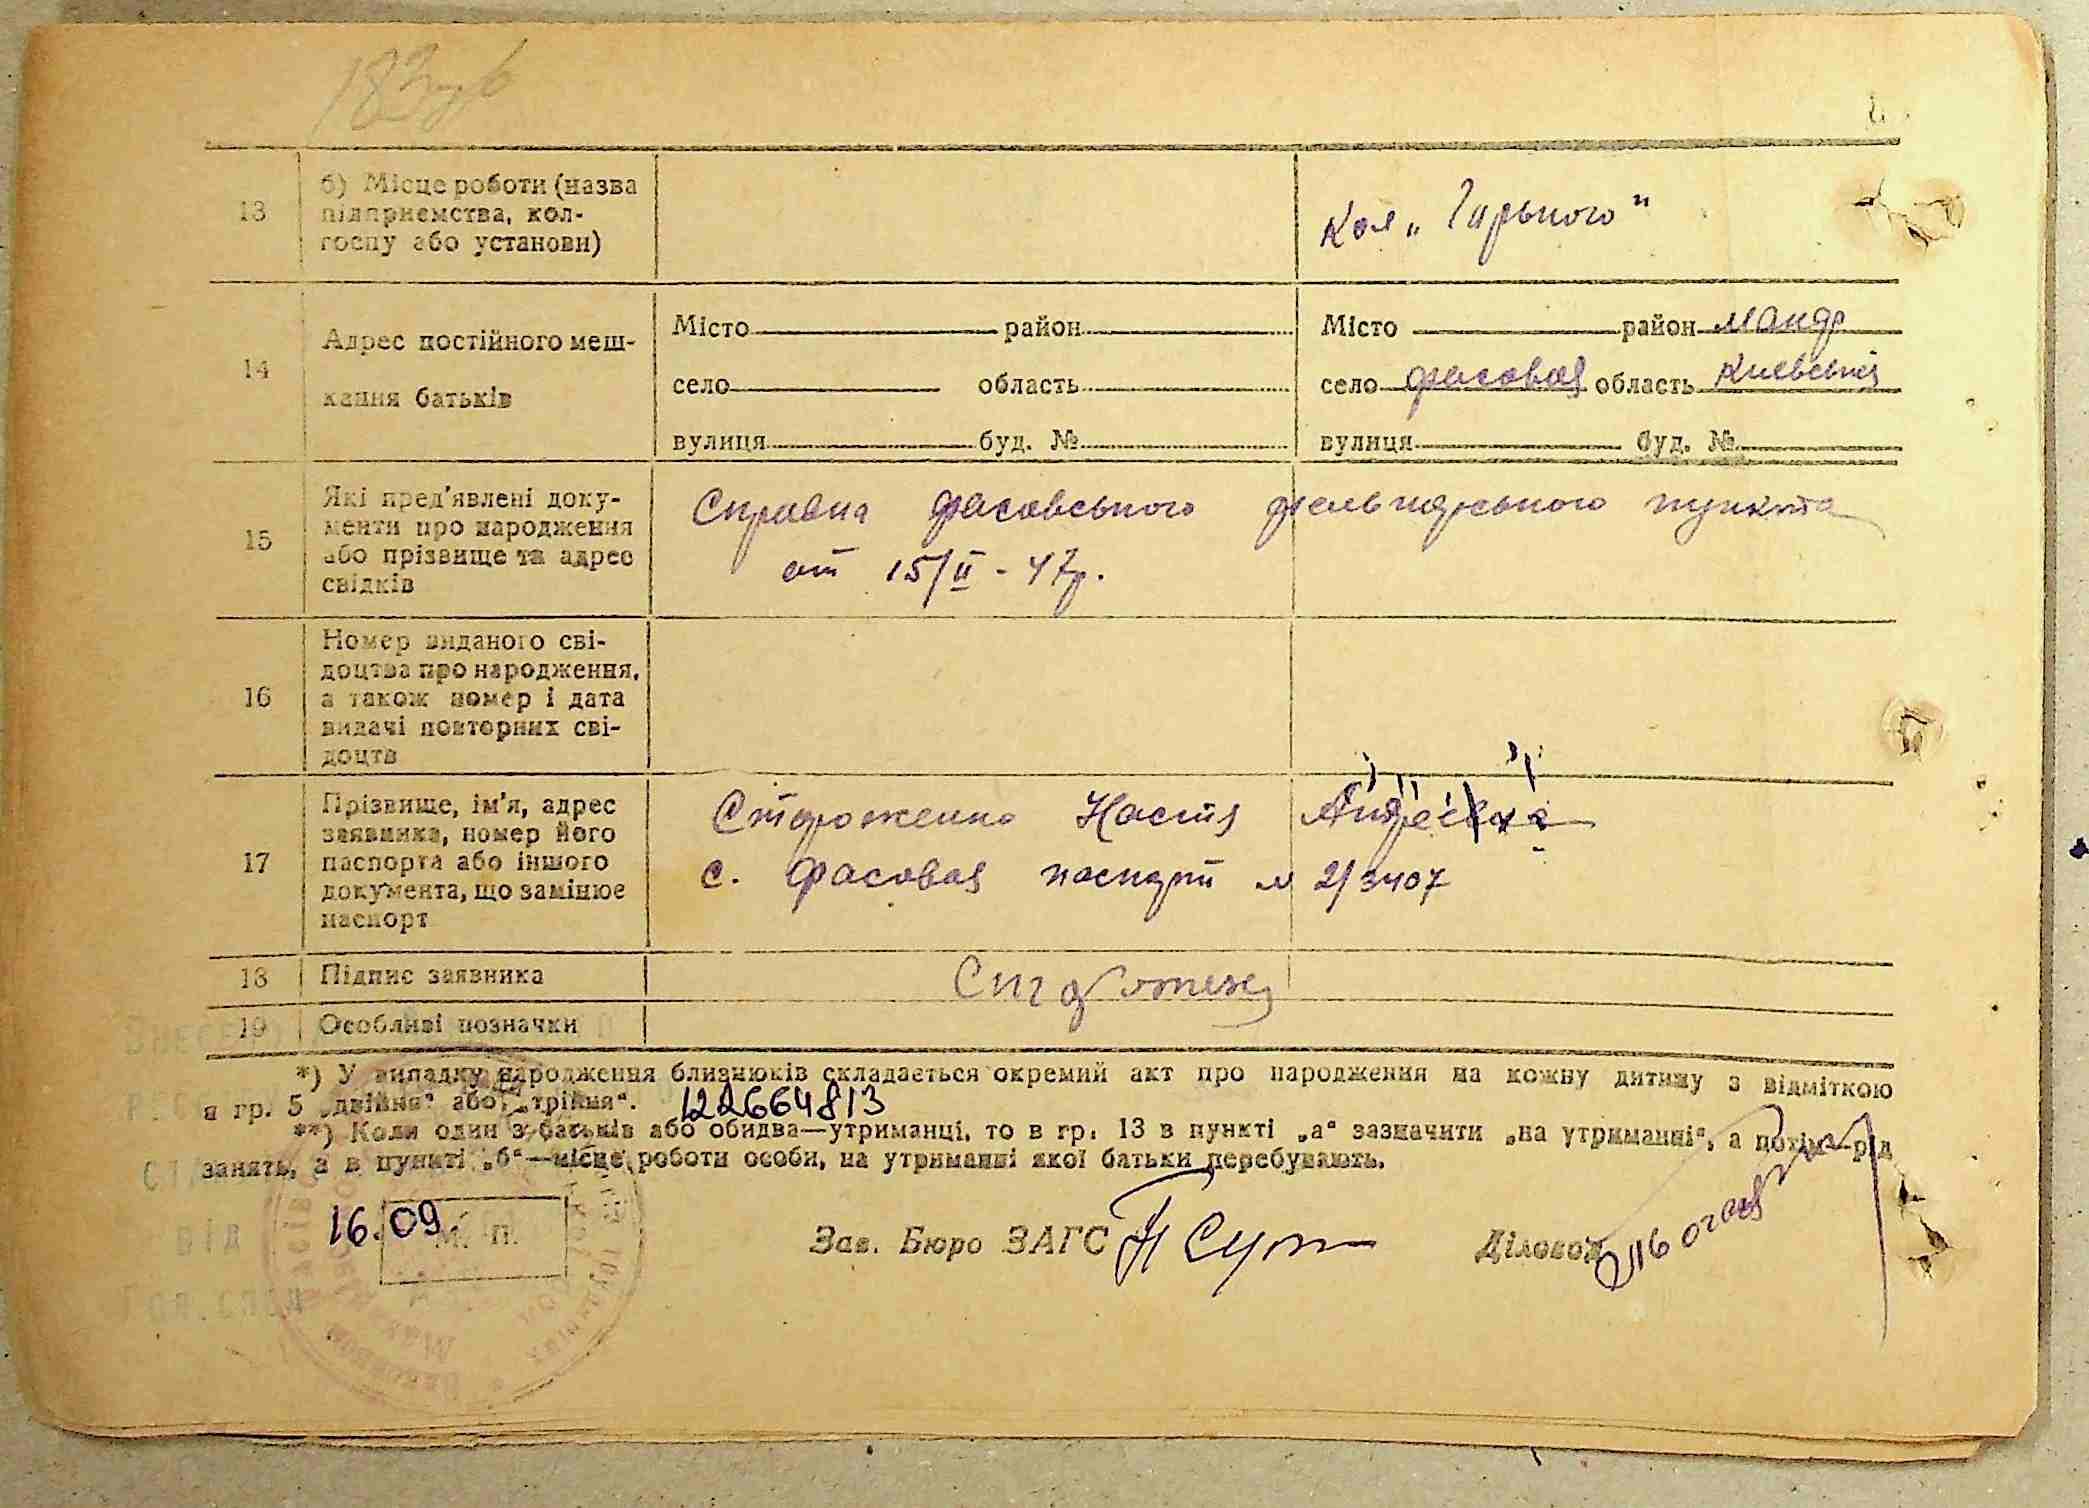 183зв
13 б) Місце роботи (назва
підприємства, кол-
госпу або установи)
Кол „Горького"
14 Адрес постійного меш-
кання батьків
Місто район
село область
вулиця буд. №
Місто район Макар
село Фасовая область Киевский
вулиця буд. №
15 Які пред'явлені доку-
менти про народження
або прізвище та адрес
свідків
Справка Фасовського фельдшерського пункта
от 15/II - 47р.
16 Номер виданого сві-
доцтва про народження,
а також номер і дата
видачі повторних сві-
доцтв
17 Прізвище, ім'я, адрес
заявника, номер його
паспорта або іншого
документа, що замінює
паспорт
Стороженко Настя Андреевна
с. Фасовая паспорт № 2/3407
18 Підпис заявника
19 Особливі позначки
*) У випадку народження близнюків складається окремий акт про народження на кожну дитину з відміткою
в гр. 5 „двійня" або „трійня". 122664813
**) Коли один з батьків або обидва—утриманці, то в гр. 13 в пункті „а" зазначити „на утриманні", а потім—рід
занять, а в пункті „б"—місце роботи особи, на утриманні якої батьки перебувають.
від 16.09 М. П.
Зав. Бюро ЗАГС Діловод